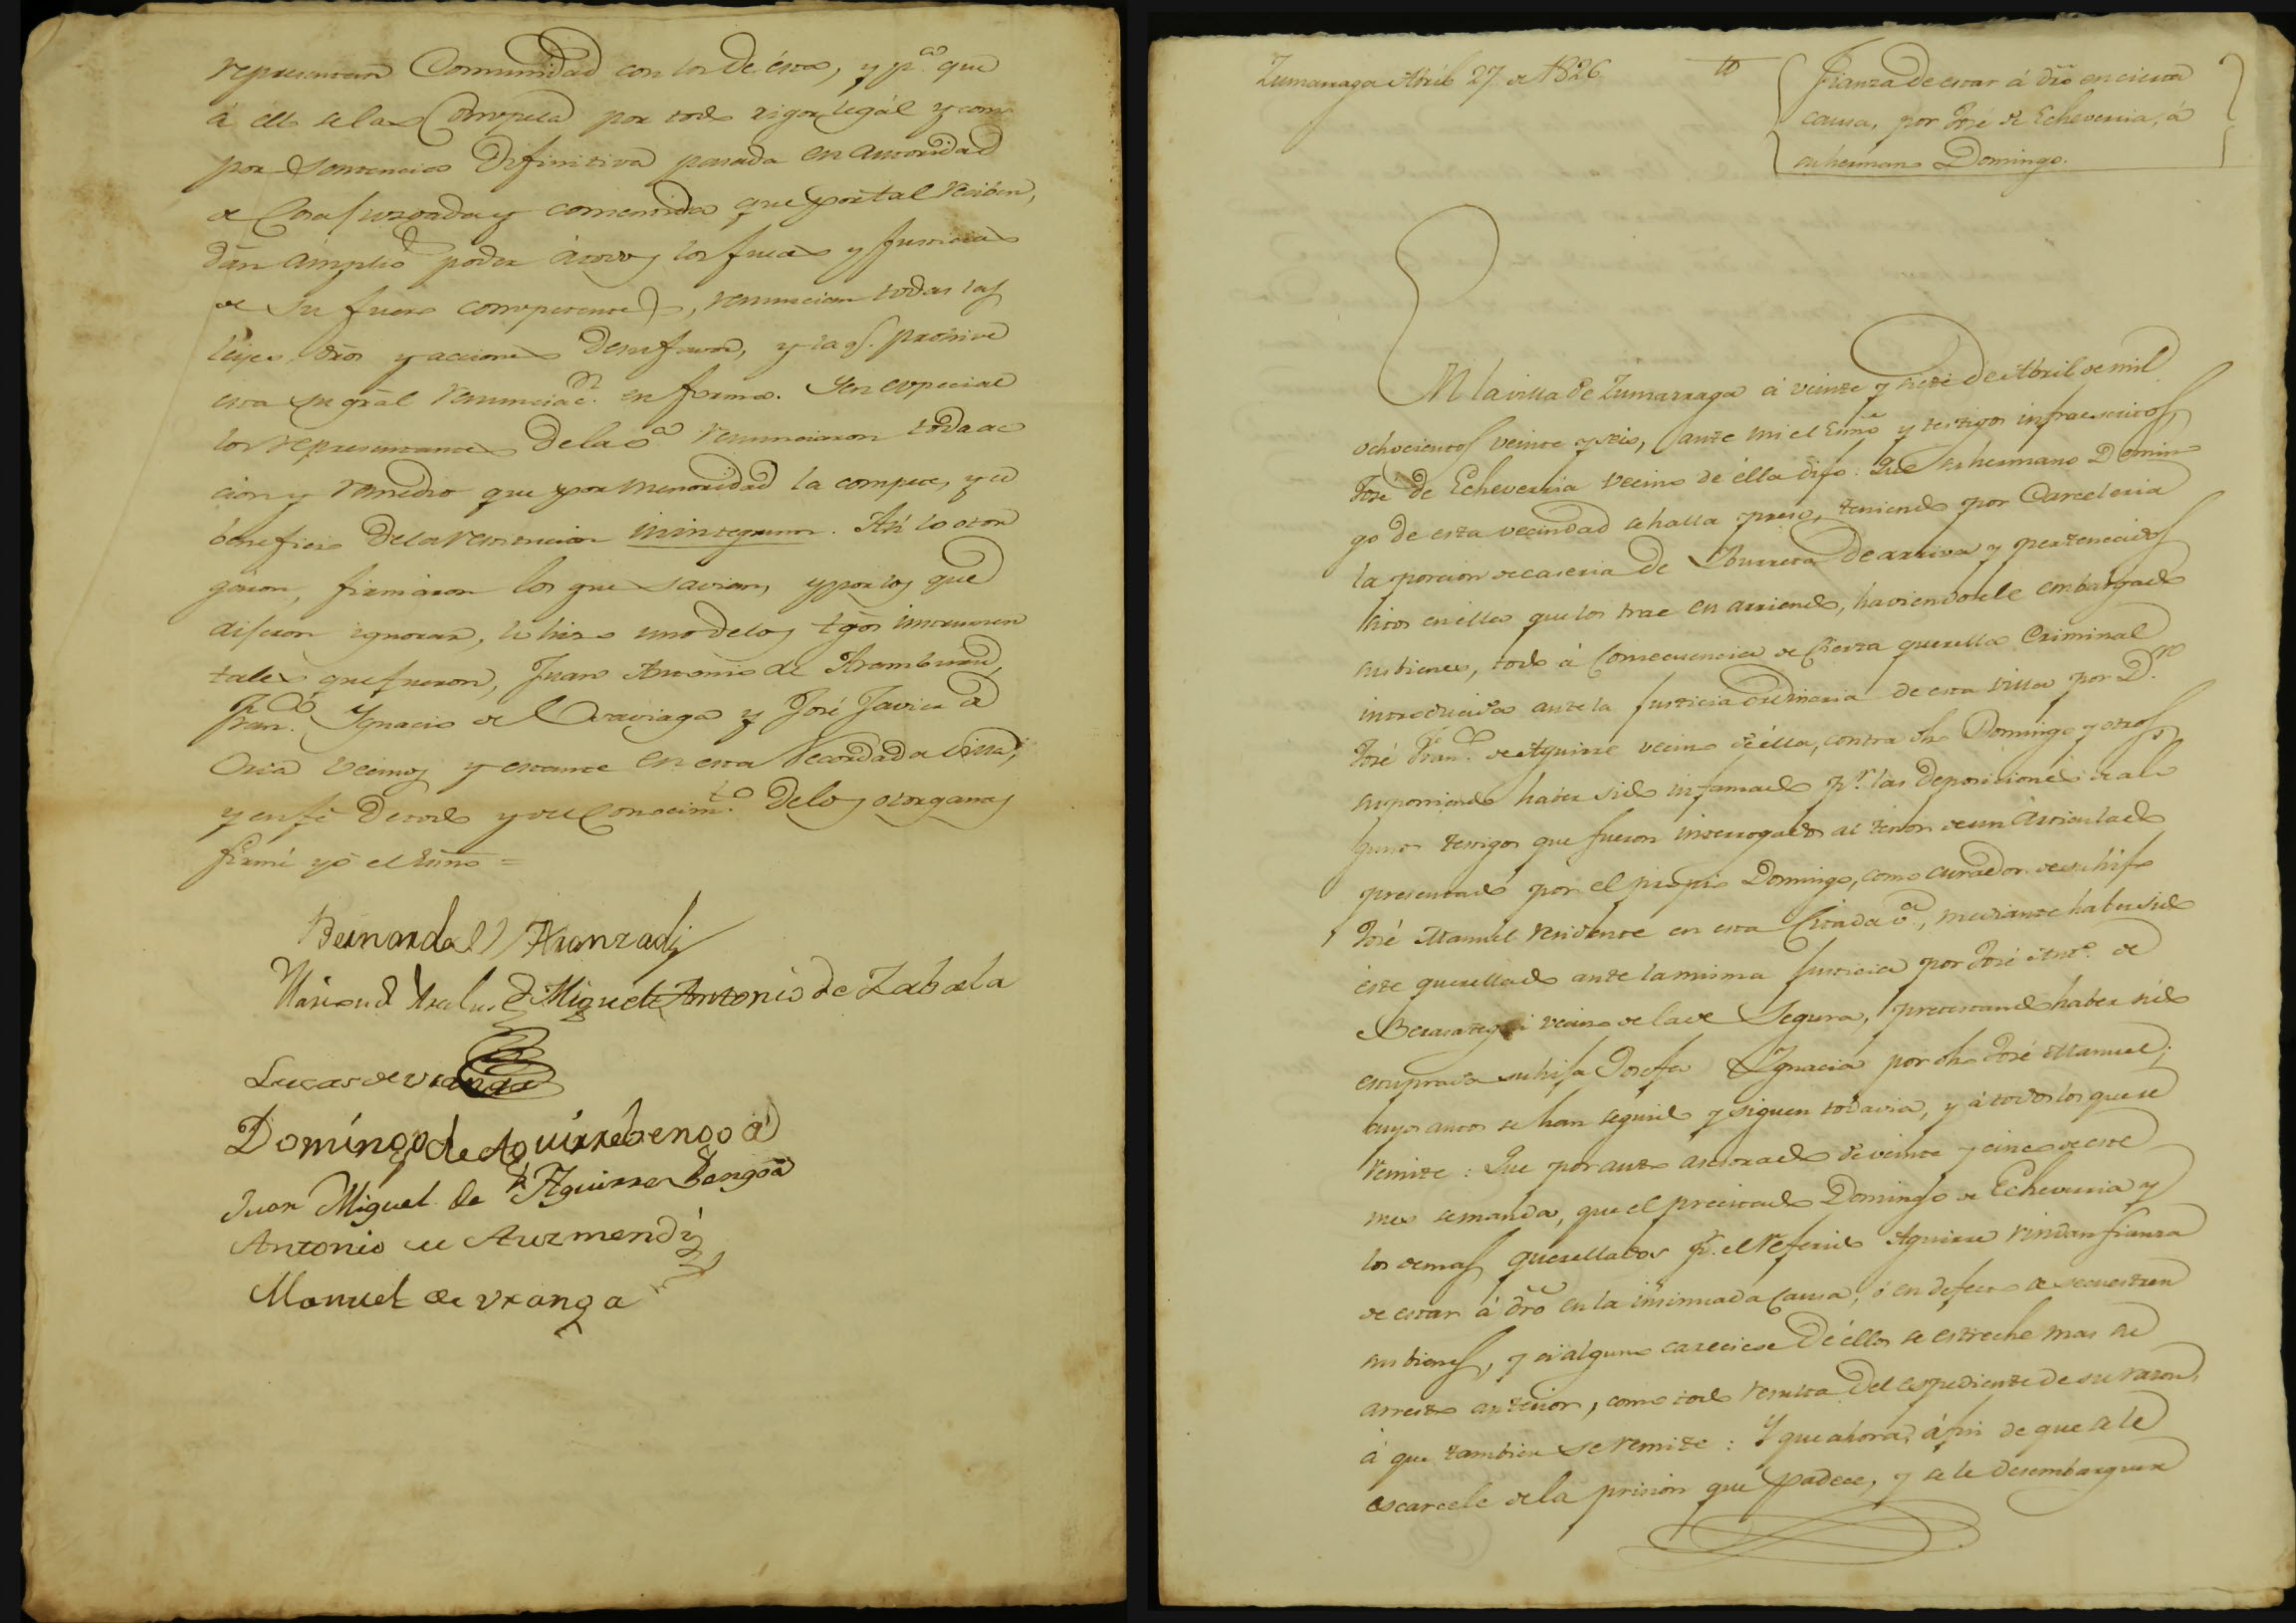 representan Comunidad con los de ésta, y pª. que
á éllo se las Compela por todo rigor legál y como
por Sentencia Difinitiva pasada en autoridad
de Cosa juzgada y consentida que por tal reciben,
dán ámplio poder átodos los Jueces y Justicias
de su fuero competente, renuncian todas las
leyes dros y acciones desu favor, y la q.e prohive
esta en grãl renunciac.on en forma. Y en especial
los representantes dela vª renunciaron toda ac
cion y remedio que por menoridad la compete, y el
beneficio dela restitucion in integrum. Asi lo otor
garon, firmáron los que savian, y por los que
dijeron ignorar, lo hizo uno delos tgõs instrumen
tales que fueron, Juan Antonio de Aramburu,
Fran.co Ignacio de Oraviaga y José Javier de
Oria vecinos y estante en esta recordada villa,
y en fé de todo y del Conocim.to delos otorgantes
firmé yo el Essno =
Bernardo Aranzadi
Miguel Antonio de Zabala
Lucas de Uranga
Domingo de Aguirrebengoa
Juan Miguel de Aguirre Bengoa
Antonio de Auzmendi
Manuel de Uranga
Zumarraga Abril 27 de 1826
Fianza de estar á dro en cierta
causa, por José de Echeverria, á
su hermano Domingo.
En la villa de Zumarraga á veinte y siete de Abril de mil
ochocientos veinte y seis, ante mi el Essno y testigos infraescritos,
José de Echeverria vecino de élla dijo: Que su hermano Domin
go de esta vecindad se halla preso, teniendo por Carceleria
la porcion de caseria de Ybarreta de arriva y pertenecidos
sitos en élla que los trae en arriendo, haviendosele embargado
sus bienes, todo á Consecuencia de Cierta querella Criminal
introducida ante la Justicia ordinaria de esta villa por D.n
José Fran.co de Aguirre vecino de élla, contra dho Domingo y otros,
suponiendo haber sido infamado p.r las deposiciones de al
gunos testigos que fueron interrogados al tenor de un Articulado
presentado por el propio Domingo, como curador de su hijo
José Manuel residente en esta Citada vª, mediante haber sido
éste querellado ante la misma Justicia por José Ant.o de
Berasategui vecino de la de Segura, pretestando haber sido
estuprada su hija Josefa Ygnacia por dho José Manuel;
cuyos autos se han seguido y siguen todavia, y á todos los que se
remite: Que por auto asesorado de veinte y cinco de este
mes se manda, que el precitado Domingo de Echeverria y
los demas querellados p.r el referido Aguirre rindan fianza
de estar á dro en la insinuada Causa, ó en defecto se secuestren
sus bienes, y si alguno careciese de éllos se estreche mas su
arresto anterior, como todo resulta del espediente de su razon,
á que tambien se remite: Y que ahora, á fin de que se le
escarcele de la prision que padece, y se le desembarguen